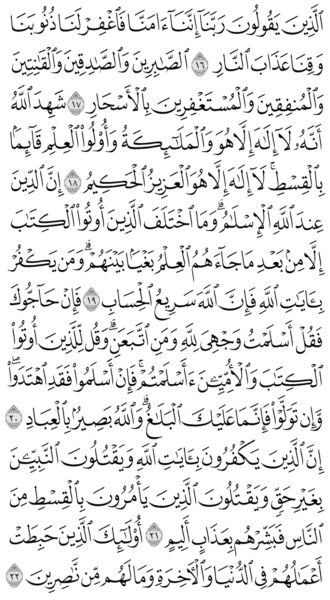 الَّذِينَ يَقُولُونَ رَبَّنَا إِنَّنَا ءَامَنَّا فَاغْفِرْ لَنَا ذُنُوبَنَا
وَقِنَا عَذَابَ النَّارِ ١٦ الصَّابِرِينَ وَالصَّادِقِينَ وَالْقَانِتِينَ
وَالْمُنفِقِينَ وَالْمُسْتَغْفِرِينَ بِالْأَسْحَارِ ١٧ شَهِدَ اللَّهُ
أَنَّهُ لَا إِلَٰهَ إِلَّا هُوَ وَالْمَلَائِكَةُ وَأُولُوا الْعِلْمِ قَائِمًا
بِالْقِسْطِ ۚ لَا إِلَٰهَ إِلَّا هُوَ الْعَزِيزُ الْحَكِيمُ ١٨ إِنَّ الدِّينَ
عِندَ اللَّهِ الْإِسْلَامُ ۗ وَمَا اخْتَلَفَ الَّذِينَ أُوتُوا الْكِتَابَ
إِلَّا مِنْ بَعْدِ مَا جَاءَهُمُ الْعِلْمُ بَغْيًا بَيْنَهُمْ ۗ وَمَن يَكْفُرْ
بِـَٔايَاتِ اللَّهِ فَإِنَّ اللَّهَ سَرِيعُ الْحِسَابِ ١٩ فَإِنْ حَاجُّوكَ
فَقُلْ أَسْلَمْتُ وَجْهِيَ لِلَّهِ وَمَنِ اتَّبَعَنِ ۗ وَقُل لِّلَّذِينَ أُوتُوا
الْكِتَابَ وَالْأُمِّيِّينَ ءَأَسْلَمْتُمْ ۚ فَإِنْ أَسْلَمُوا فَقَدِ اهْتَدَوا ۖ
وَّإِن تَوَلَّوْا فَإِنَّمَا عَلَيْكَ الْبَلَاغُ ۗ وَاللَّهُ بَصِيرٌ بِالْعِبَادِ ٢٠
إِنَّ الَّذِينَ يَكْفُرُونَ بِـَٔايَاتِ اللَّهِ وَيَقْتُلُونَ النَّبِيِّينَ
بِغَيْرِ حَقٍّ وَيَقْتُلُونَ الَّذِينَ يَأْمُرُونَ بِالْقِسْطِ مِنَ
النَّاسِ فَبَشِّرْهُم بِعَذَابٍ أَلِيمٍ ٢١ أُولَٰئِكَ الَّذِينَ حَبِطَتْ
أَعْمَالُهُمْ فِي الدُّنْيَا وَالْآخِرَةِ وَمَا لَهُم مِّن نَّاصِرِينَ ٢٢